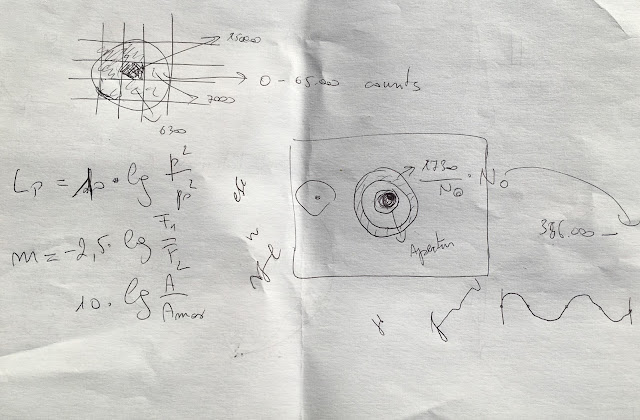 15000
0 - 65.000 counts
7000
6300
Lp = 10 • lg p²/p₀²
m = -2,5 • lg F₁/F₂
10 • lg A/Amax
1730/N⊙ • N₀
386.000